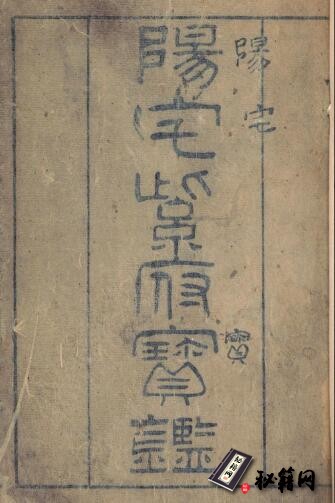 陽宅
陽宅紫府寶鑑
寶
秘籍网